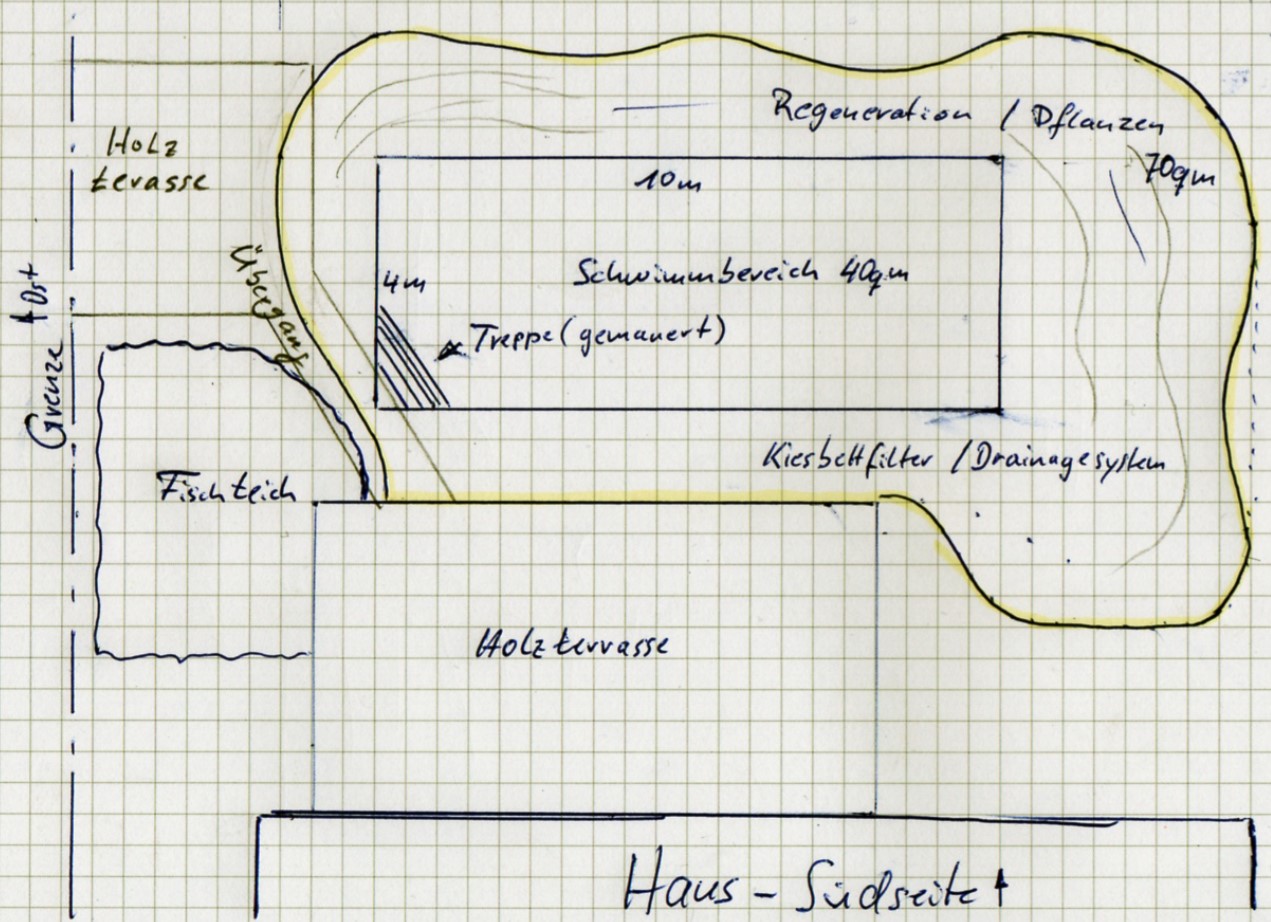 Regeneration / Pflanzen
70qm
Holz
terasse
10m
Übergang
4m
Schwimmbereich 40qm
Grenze Ost
Treppe (gemauert)
Kiesbettfilter / Drainagesystem
Fischteich
Holzterrasse
Haus - Südseite